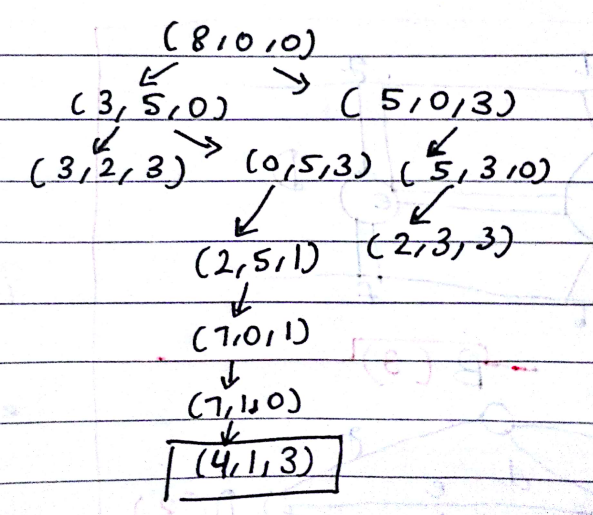 (8,0,0)
(3,5,0) (5,0,3)
(3,2,3) (0,5,3) (5,3,0)
(2,5,1) (2,3,3)
(7,0,1)
(7,1,0)
(4,1,3)